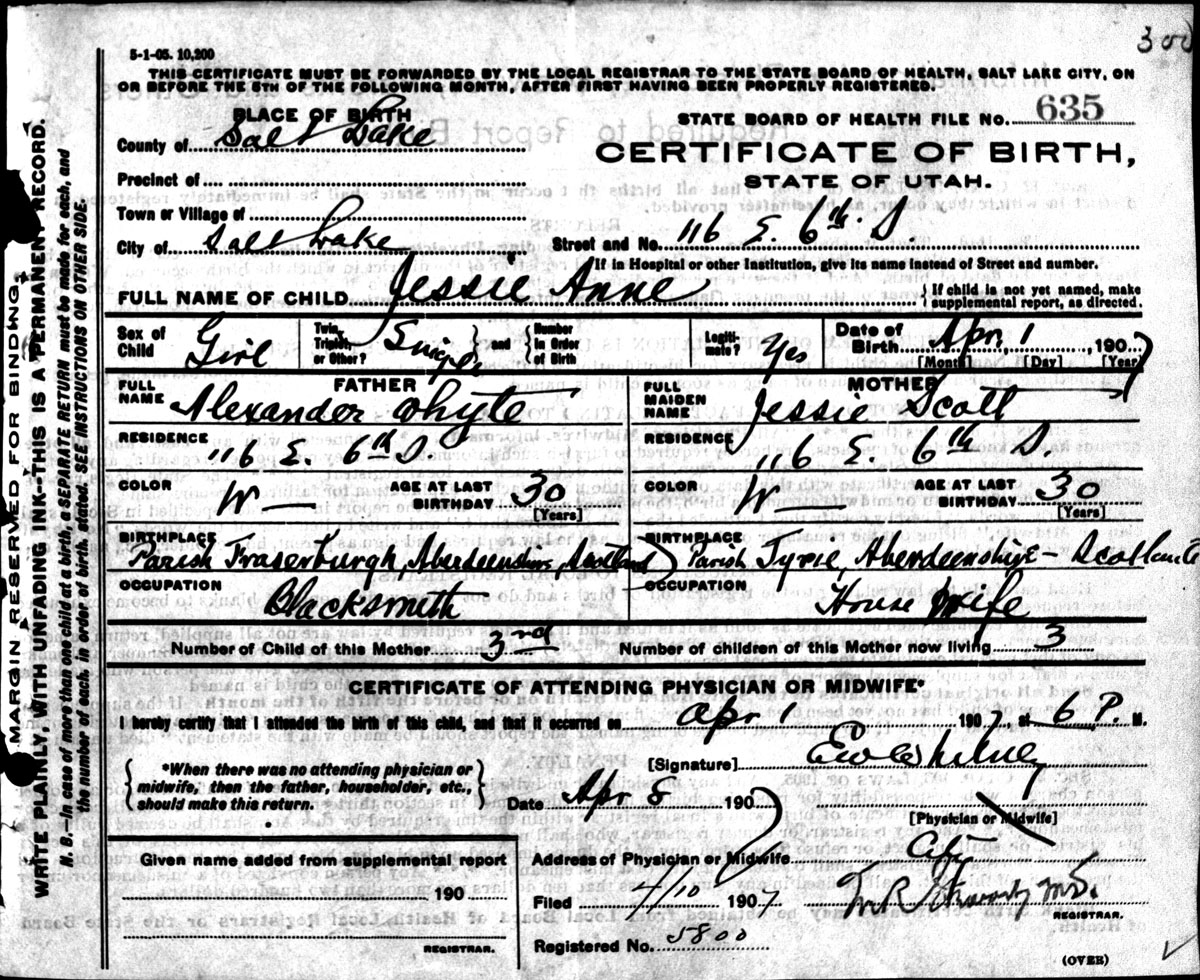 300
5-1-05. 10,200
THIS CERTIFICATE MUST BE FORWARDED BY THE LOCAL REGISTRAR TO THE STATE BOARD OF HEALTH, SALT LAKE CITY, ON
OR BEFORE THE 5TH OF THE FOLLOWING MONTH, AFTER FIRST HAVING BEEN PROPERLY REGISTERED.
PLACE OF BIRTH
County of Salt Lake
STATE BOARD OF HEALTH FILE NO. 635
CERTIFICATE OF BIRTH,
STATE OF UTAH.
Precinct of
Town or Village of
City of Salt Lake
Street and No. 116 E. 6th S.
If in Hospital or other Institution, give its name instead of Street and number.
FULL NAME OF CHILD Jessie Anne
{If child is not yet named, make
supplemental report, as directed.
Sex of Child Girl
Twin, Triplet, or Other? Single
} and {
Number in Order of Birth
Legiti-mate? Yes
Date of Birth Apr, 1, 1907
[Month] [Day] [Year]
FATHER
FULL NAME Alexander Whyte
MOTHER
FULL MAIDEN NAME Jessie Scott
RESIDENCE 116 E. 6th S
RESIDENCE 116 E. 6th S.
COLOR W
AGE AT LAST BIRTHDAY 30
[Years]
COLOR W
AGE AT LAST BIRTHDAY 30
[Years]
BIRTHPLACE
Parish Fraserburgh, Aberdeenshire, Scotland
BIRTHPLACE
Parish Tyrie, Aberdeenshire - Scotland
OCCUPATION
Blacksmith
OCCUPATION
House Wife
Number of Child of this Mother 3rd
Number of children of this Mother now living 3
CERTIFICATE OF ATTENDING PHYSICIAN OR MIDWIFE*
I hereby certify that I attended the birth of this child, and that it occurred on Apr 1 1907, at 6 P. M.
{*When there was no attending physician or
midwife, then the father, householder, etc.,
should make this return.}
[Signature] E W Whitney
Date Apr 8 1907
[Physician or Midwife]
Given name added from supplemental report
190
REGISTRAR.
Address of Physician or Midwife City
Filed 4/10 1907
M.D.
REGISTRAR.
Registered No. 5800
(OVER)
MARGIN RESERVED FOR BINDING.
WRITE PLAINLY, WITH UNFADING INK--THIS IS A PERMANENT RECORD.
N. B.--In case of more than one child at a birth, a SEPARATE RETURN must be made for each, and
the number of each, in order of birth, stated. SEE INSTRUCTIONS ON OTHER SIDE.